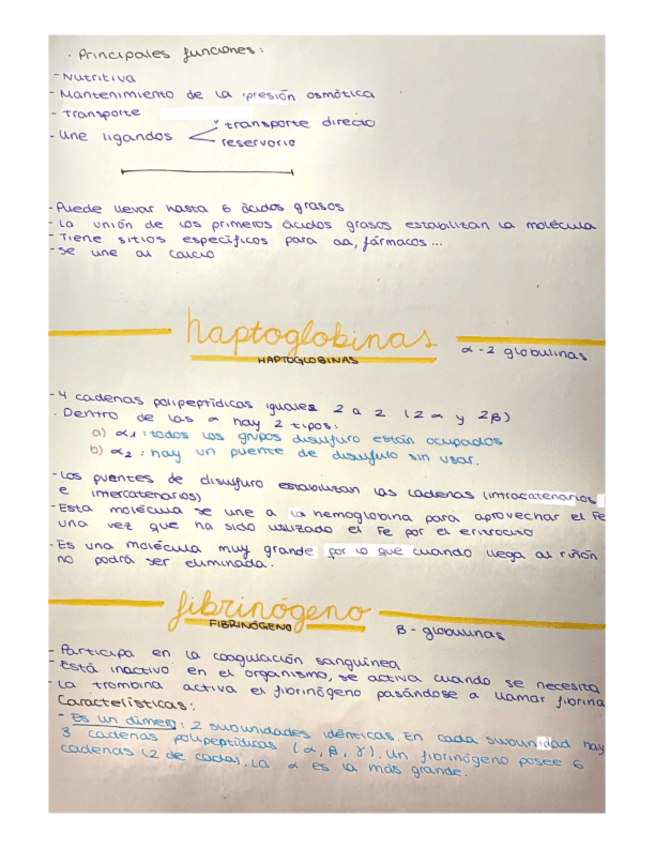 · Principales funciones:
- Nutritiva
- Mantenimiento de la presión osmótica
- Transporte
- Une ligandos < transporte directo
reservorio
- Puede llevar hasta 6 ácidos grasos
- La unión de los primeros ácidos grasos estabilizan la molécula
- Tiene sitios específicos para aa, fármacos...
- Se une al calcio
haptoglobinas
HAPTOGLOBINAS
α-2 globulinas
- 4 cadenas polipeptídicas iguales 2 a 2 (2α y 2β)
· Dentro de las α hay 2 tipos:
a) α1: todos los grupos disulfuro están ocupados
b) α2: hay un puente de disulfuro sin usar.
- Los puentes de disulfuro estabilizan las cadenas (intracatenarios
e intercatenarios)
- Esta molécula se une a la hemoglobina para aprovechar el Fe
una vez que ha sido utilizado el Fe por el eritrocito
- Es una molécula muy grande por lo que cuando llega al riñón
no podrá ser eliminada.
fibrinógeno
FIBRINÓGENO
β - globulinas
- Participa en la coagulación sanguínea
- Está inactivo en el organismo, se activa cuando se necesita
- La trombina activa el fibrinógeno pasándose a llamar fibrina
Características:
- Es un dímero: 2 subunidades idénticas. En cada subunidad hay
3 cadenas polipeptídicas (α, β, γ). Un fibrinógeno posee 6
cadenas (2 de cada). La α es la más grande.